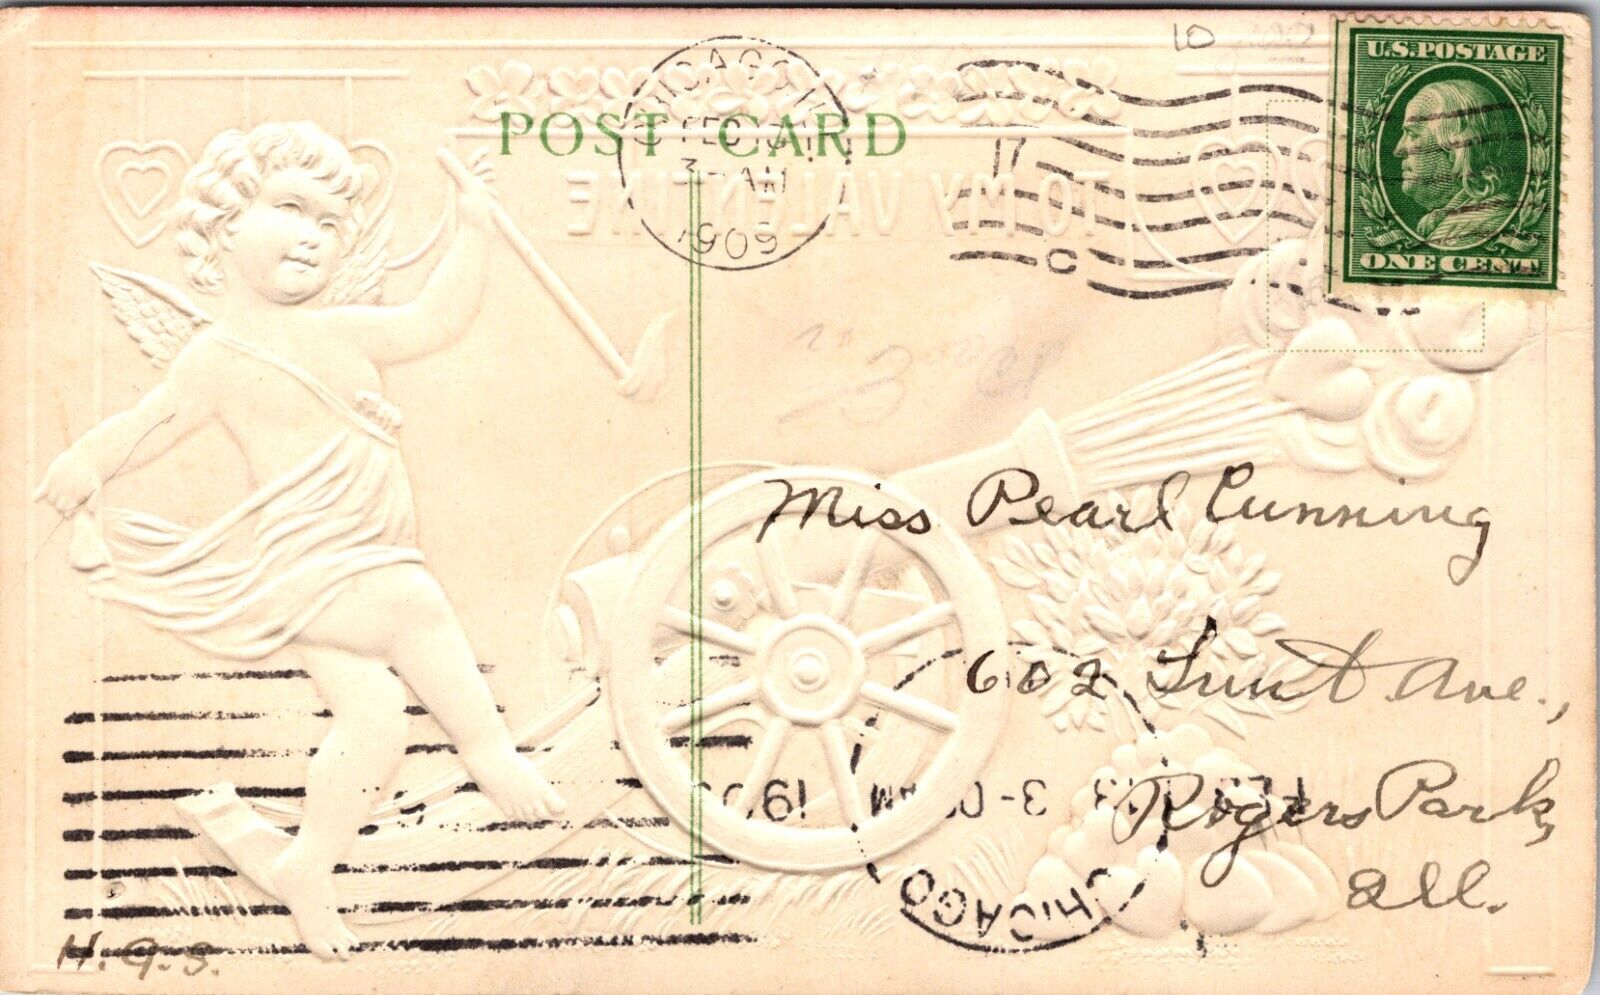 10
U.S. POSTAGE
ONE CENT
CHICAGO, ILL.
FEB 13
3 - AM
1909
17
C
POST CARD
TO MY VALENTINE
Miss Pearl Cunning
602 Lunt Ave.,
Rogers Park,
Ill.
CHICAGO
FEB 13 3-0 AM 1909
H. G. S.